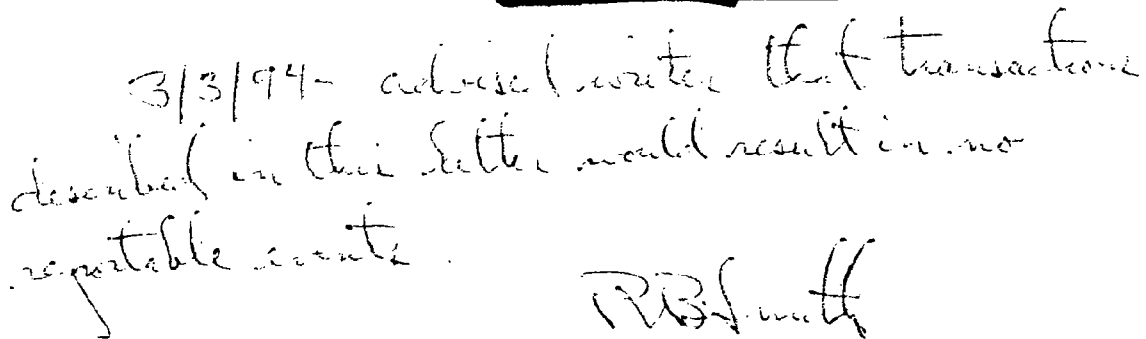 3/3/94- advised writer that transactions
described in this letter would result in no
reportable events.
RBSmith